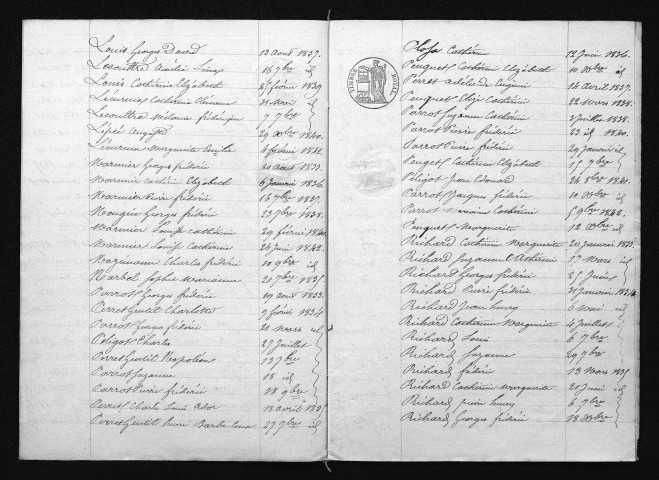 Louis Georges David 13 aout 1837.
Lecoultre Amélie Louise 16 7bre id
Louis Catherine Elizabeth 27 fevrier 1839
Lheureux Catherine Clemence 31 Mai id
Lecoultre Melanie frédérique 7 7bre
Lepée Auguste 29 Xbre 1840.
Lheureux Marguerite Emilie 4 fevrier 1842
Marmier Georges frédéric 20 aout 1833.
Marmier Catherine Elizabeth 6 Janvier 1836
Marmier Pierre frédéric 16 7bre 1837.
Mougin Georges frédéric 23 7bre 1838.
Marmier Louise Catherine 29 février 1840.
Marmier Louise Catherine 26 Juin 1842.
Marzmann Charles frédéric 10 9bre id
Marbel Sophie Marianne 20 7bre 1835
Parrot Georges frédéric 19 aout 1833.
Perret Gentil Charlotte 9 fevrier 1834
Parrot Georges frédéric 21 Mars id
Peligot Charles 27 Juillet
Perret Gentil Napoléon 13 7bre
Parrot Suzanne 18 id
Parrot Pierre frédéric 18 9bre
Perret Charle Louis Ador 18 avril 1835
Perret Gentil Henri Barbe 27 7bre id
TIMBRE ROYAL
Catherine 12 Juin 1836.
Peuguet Catherine Elizabeth 10 Xbre id
Perret Adélaide Eugenie 14 avril 1837.
Peuguet Elize Catherine 22 Mars 1838.
Parrot Suzanne Catherine 3 Juillet 1838.
Parrot Pierre frédéric 23 id 1840.
Parrot Pierre frédéric 29 Janvier id
Peuget Catherine Elizabeth 15 7bre
Peligot Jean Edouard 26 8bre 1840.
Parrot Jacques frédéric 10 Xbre id
Parrot Catherine 5 9bre 1842.
Peuguet Marguerite 12 Xbre id
Richard Catherine Marguerite 20 Janvier 1833.
Richard Suzanne Catherine 17 Mars id
Richard Georges frédéric 25 Juin
Richard Pierre frédéric 31 Janvier 1834
Richard Jean henry 6 Mai id
Richard Catherine Marguerite 4 Juillet
Richard Louis 6 7bre
Richard Suzanne 29 7bre
Richard frédéric 13 Mars 1835
Richard Catherine Marguerite 21 Juin id
Richard Pierre henry 6 7bre
Richard Georges frédéric 18 Xbre